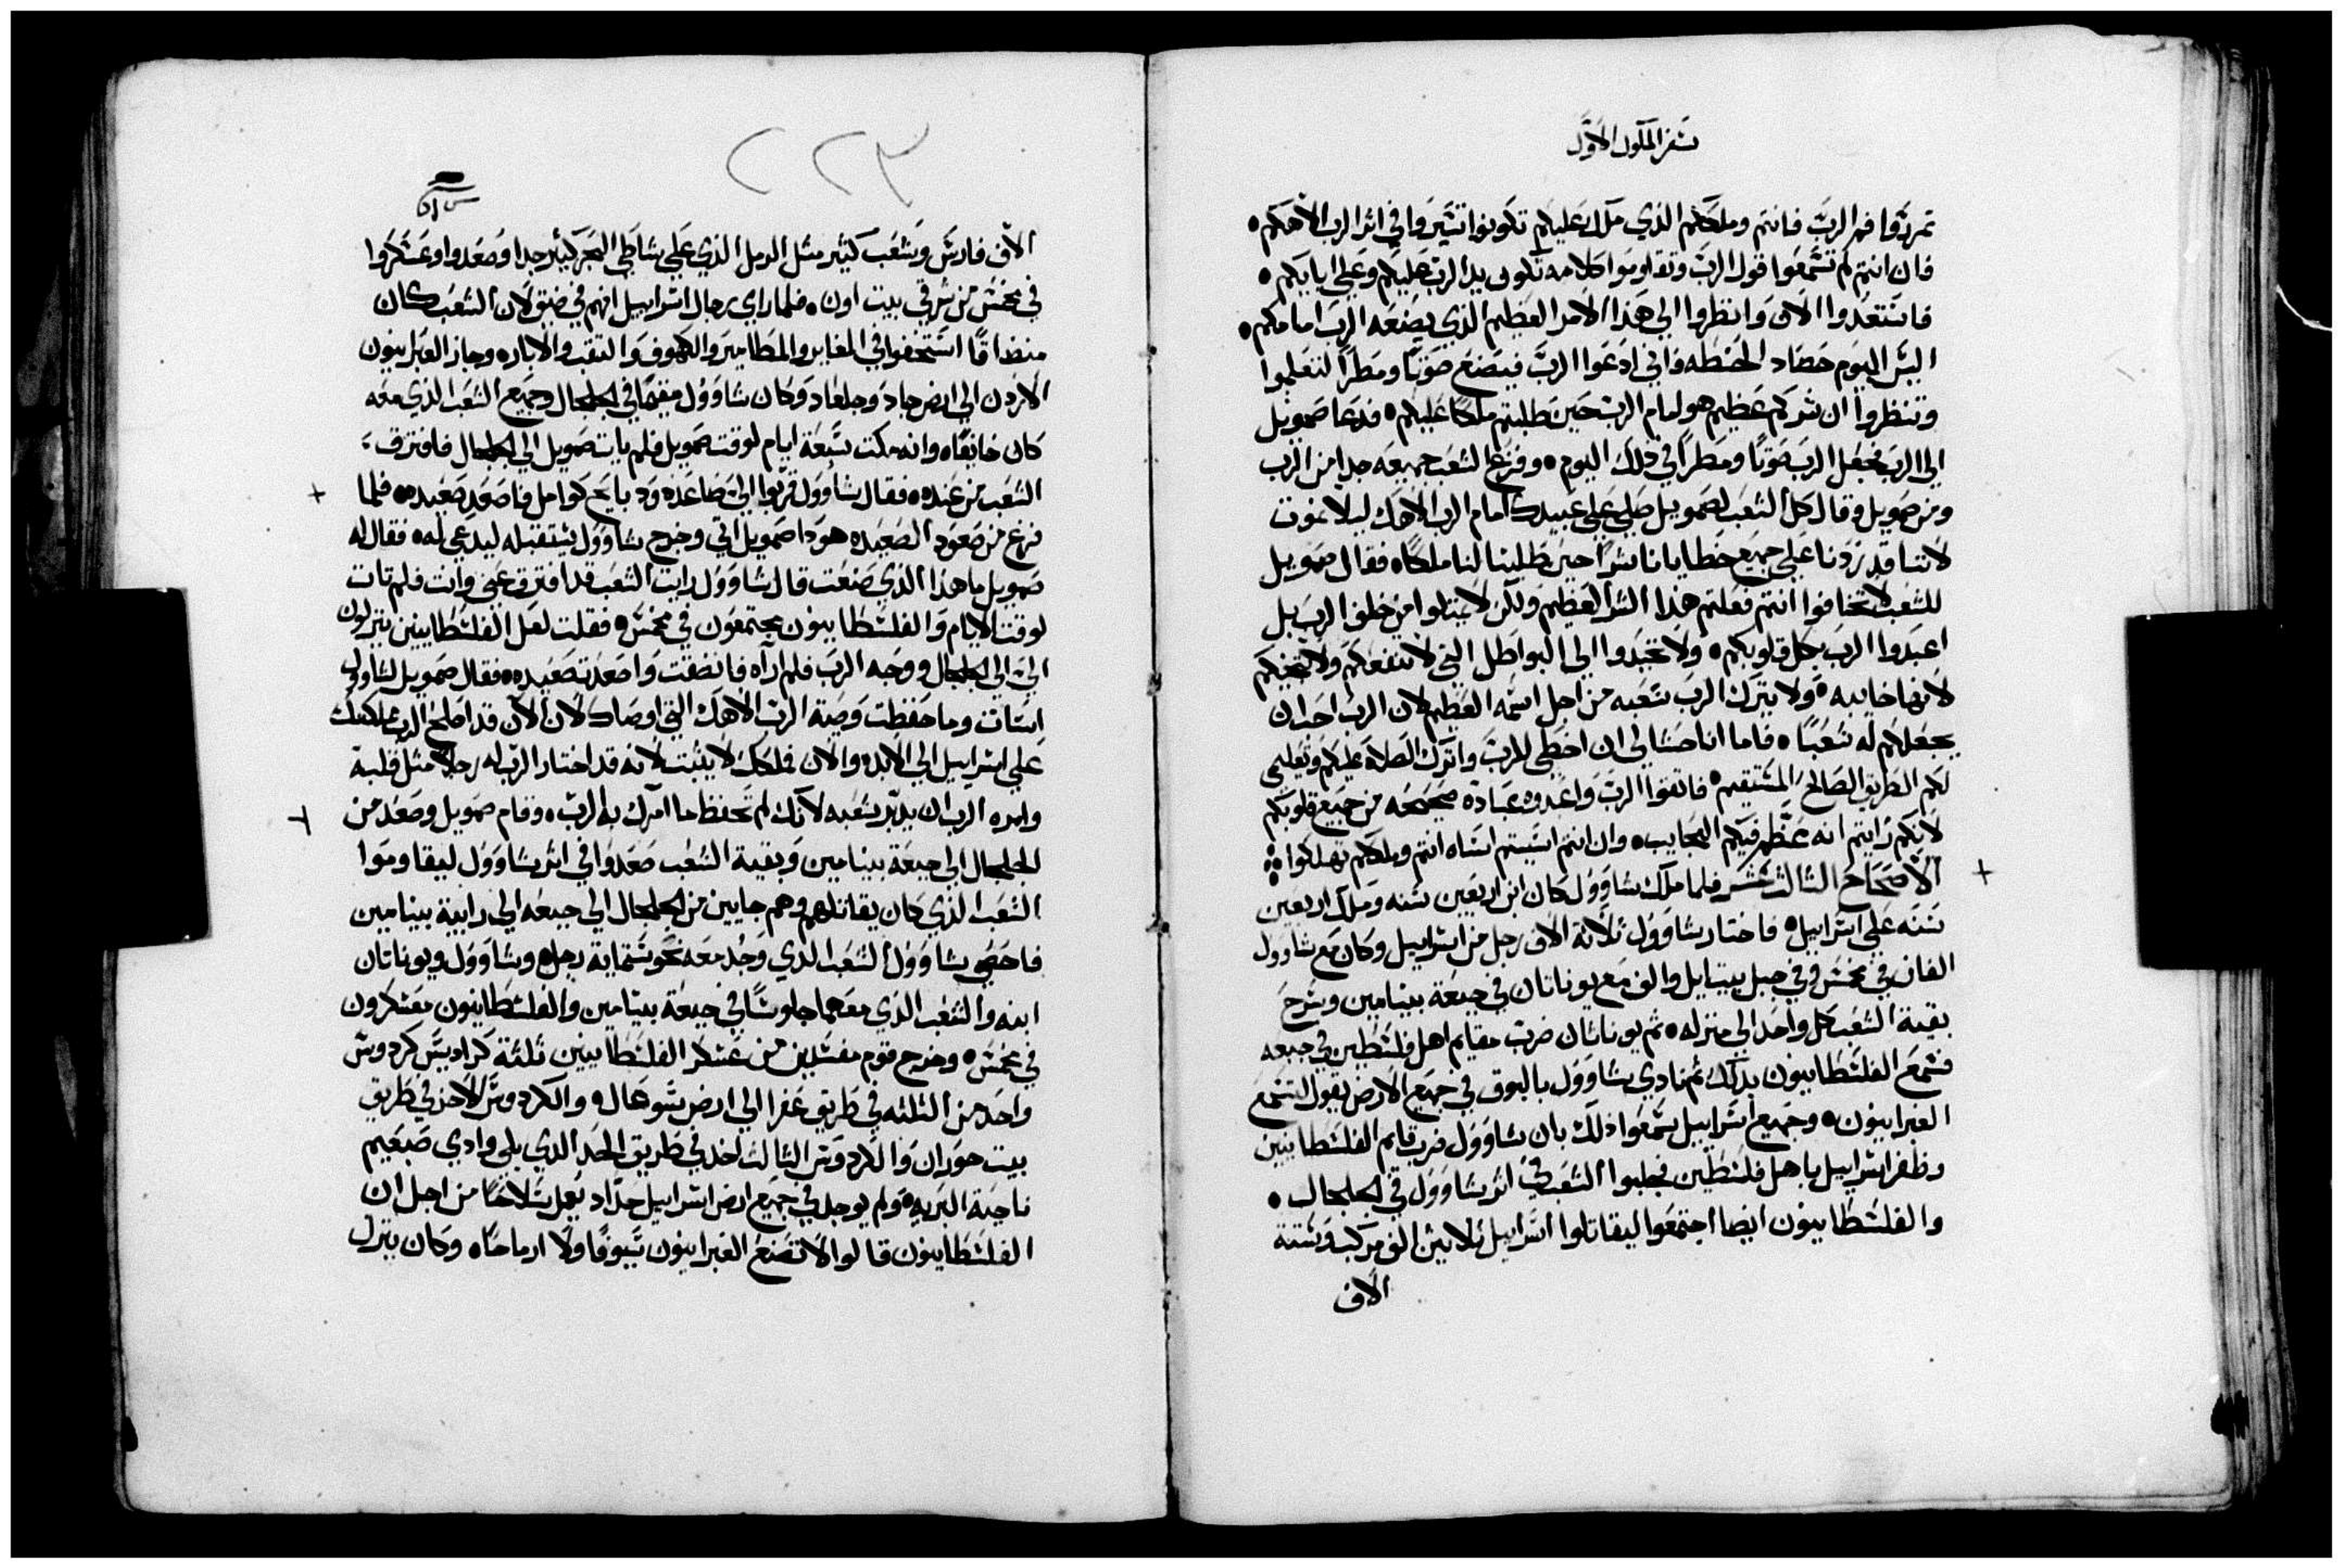 سفر الملوك الاول
تمردوا فم الرب فانتم وملككم الذي ملك عليكم تكونوا تسيروا في اثر الرب الاهكم ٥
فان انتم لم تسمعوا قول الرب وتقاوموا كلامه تكون يد الرب عليكم وعلي ابايكم ٥
فاستعدوا الان وانظروا الي هذا الامر العظيم الذي يصنعه الرب امامكم ٥
اليس اليوم حصاد الحنطه واني ادعوا الرب فيصنع صوتا ومطرا لتعلموا
وتنظروا ان شركم عظيم هو امام الرب حين طلبتم ملكا عليكم ٥ فدعا صمويل
الي الرب فجعل الرب صوتا ومطرا في ذلك اليوم ٥ وفزع الشعب جميعه جدا من الرب
ومن صمويل وقال كل الشعب لصمويل صلي علي عبيدك امام الرب الاهك ليلا نموت
لاننا قد زدنا علي جميع خطايانا شرا حين طلبنا لنا ملكا ٥ فقال صمويل
للشعب لا تخافوا انتم فعلتم هذا الشر العظيم ولكن لا تميلوا من خلف الرب بل
اعبدوا الرب بكل قلوبكم ٥ ولا تحيدوا الي البواطل التي لا تنفعكم ولا تنجيكم
لانها خايبه ٥ ولا يترك الرب شعبه من اجل اسمه العظيم لان الرب احب ان
يجعلكم له شعبا ٥ فاما انا حشا لي ان اخطي للرب واترك الصلاة عليكم وتعليمي
لكم الطريق الصالح المستقيم ٥ فاتقوا الرب واعبدوه عبادة صحيحه من جميع قلوبكم
لانكم رايتم انه عظم فيكم العجايب ٥ وان انتم اسيتم اساه انتم وملككم تهلكوا
الاصحاح الثالث عشر فلما ملك شاوول كان ابن اربعين سنه وملك اربعين
سنه علي اسراييل ٥ فاختار شاوول ثلاثة الاف رجل من اسراييل وكان مع شاوول
الفان في مخمس وفي جبل بيت ايل والف مع يوناتان في جبعة بينامين وسرح
بقية الشعب كل واحد الي منزله ٥ ثم يوناتان ضرب مقايم اهل فلسطين في جبعه
فسمع الفلسطانيون بذلك ثم نادي شاوول بالبوق في جميع الارض يقول لتسمع
العبرانيون ٥ وجميع اسراييل سمعوا ذلك بان شاوول ضرب قايم الفلسطانيين
وظفر اسراييل باهل فلسطين فجلبوا الشعب في اثر شاوول في الجلجال ٥
والفلسطانيون ايضا اجتمعوا ليقاتلوا اسراييل ثلاثين الف مركب وستة
الاف
٢٢٣
الاف فارس وشعب كثير مثل الرمل الذي علي شاطي البحر كثير جدا وصعدوا وعسكروا
في مخمس من شرقي بيت اون ٥ فلما راي رجال اسراييل انهم في ضيق لان الشعب كان
منضاقا استخفوا في المغاير والمطامير والكهوف والنقب والابار ٥ وجاز العبرانيون
الاردن الي ارض جاد وجلعاد وكان شاوول مقيما في الجلجال وجميع الشعب الذي معه
كان خايفا ٥ وانه مكث سبعة ايام لوقت صمويل فلم يات صمويل الي الجلجال فافترق
الشعب من عنده ٥ فقال شاوول قربوا الي صاعده ودبايح كوامل فاصعد صعيده ٥ فلما
فرغ من صعود الصعيده هودا صمويل اتي وخرج شاوول يستقبله ليدعي له ٥ فقال له
صمويل ما هذا الذي صنعت قال شاوول رايت الشعب قد افترق عني وانت فلم تات
لوقت الايام والفلسطانيون مجتمعون في مخمس ٥ فقلت لعل الفلسطانيين ينزلون
الي الي الجلجال ووجه الرب فلم اراه فانضقت واصعدت صعيده ٥ فقال صمويل لشاوول
اسات وما حفظت وصية الرب الاهك التي اوصاك لان الان قد اصلح الرب مملكتك
علي اسراييل الي الابد ٥ والان فملكك لا يثبت لانه قد اختار الرب له رجلا مثل قلبه
وامره الرب ان يدبر شعبه لانك لم تحفظ ما امرك به الرب ٥ وقام صمويل وصعد من
الجلجال الي جبعة بينامين وبقية الشعب صعدوا في اثر شاوول ليقاوموا
الشعب الذي كان يقاتلهم وهم جايين من الجلجال الي جبعه الي رابية بينامين
فاحصي شاوول الشعب الدي وجد معه نحو ستماية رجل ٥ وشاوول ويوناتان
ابنه والشعب الذي معهما جلوسا في جبعة بينامين والفلسطانيون معسكرون
في مخمس ٥ وخرج قوم مفسدين من عسكر الفلسطانيين ثلثة كراديس كردوس
واحد من الثلثه في طريق عفرا الي ارض سوعال ٥ والكردوس الاخر في طريق
بيت حوران والكردوس الثالث اخد في طريق الحد الدي يلي وادي صبعيم
ناحية البريه ٥ ولم يوجد في جميع ارض اسراييل حداد يعمل سلاحا من اجل ان
الفلسطانيون قالوا لا تصنع العبرانيون سيوفا ولا ارماحا ٥ وكان ينزل